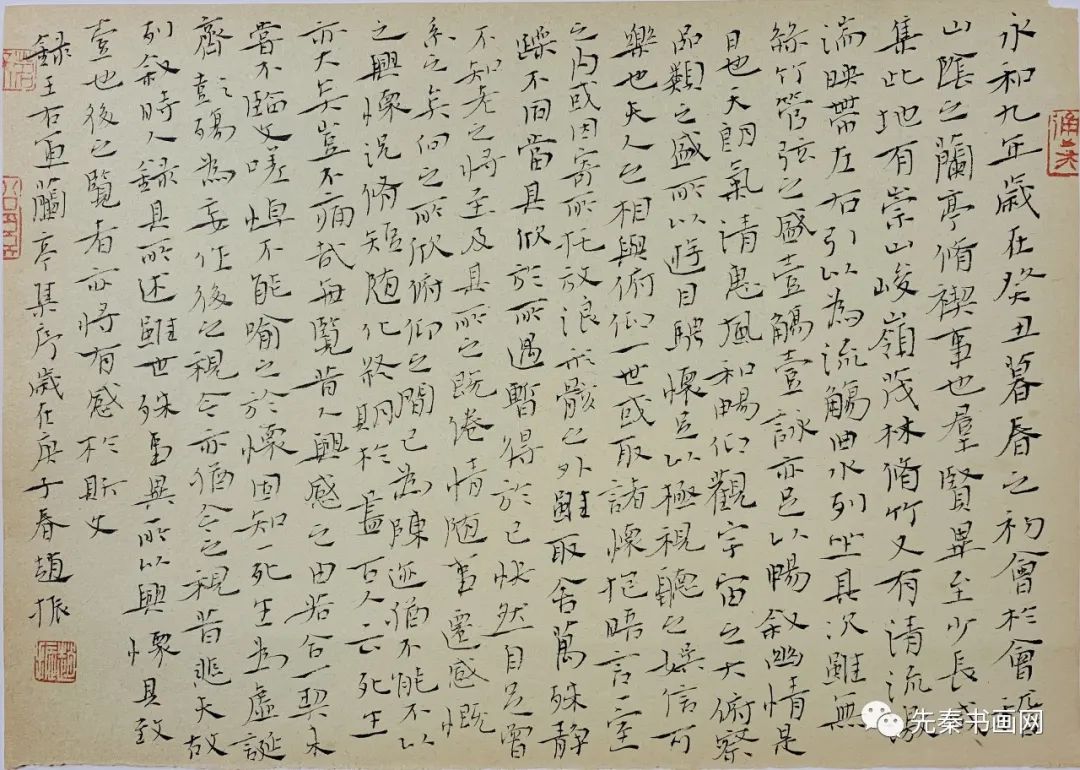 永和九年歲在癸丑暮春之初會於會稽
山陰之蘭亭脩禊事也羣賢畢至少長咸
集此地有崇山峻嶺茂林脩竹又有清流激
湍映帶左右引以為流觴曲水列坐其次雖無
絲竹管弦之盛壹觴壹詠亦足以暢叙幽情是
日也天朗氣清惠風和暢仰觀宇宙之大俯察
品類之盛所以遊目騁懷足以極視聽之娛信可
樂也夫人之相與俯仰一世或取諸懷抱晤言一室
之內或因寄所托放浪形骸之外雖取舍萬殊静
躁不同當其欣於所遇暫得於己快然自足曾
不知老之將至及其所之既倦情随事遷感慨
系之矣向之所欣俯仰之間已為陳迹猶不能不以
之興懷況脩短随化終期於盡古人云死生
亦大矣豈不痛哉每覽昔人興感之由若合一契未
嘗不臨文嗟悼不能喻之於懷固知一死生為虛誕
齊彭殤為妄作後之視今亦猶今之視昔悲夫故
列叙時人録其所述雖世殊事異所以興懷其致
壹也後之覽者亦將有感於斯文
録王右軍蘭亭集序歲在庚子春趙振
先秦书画网